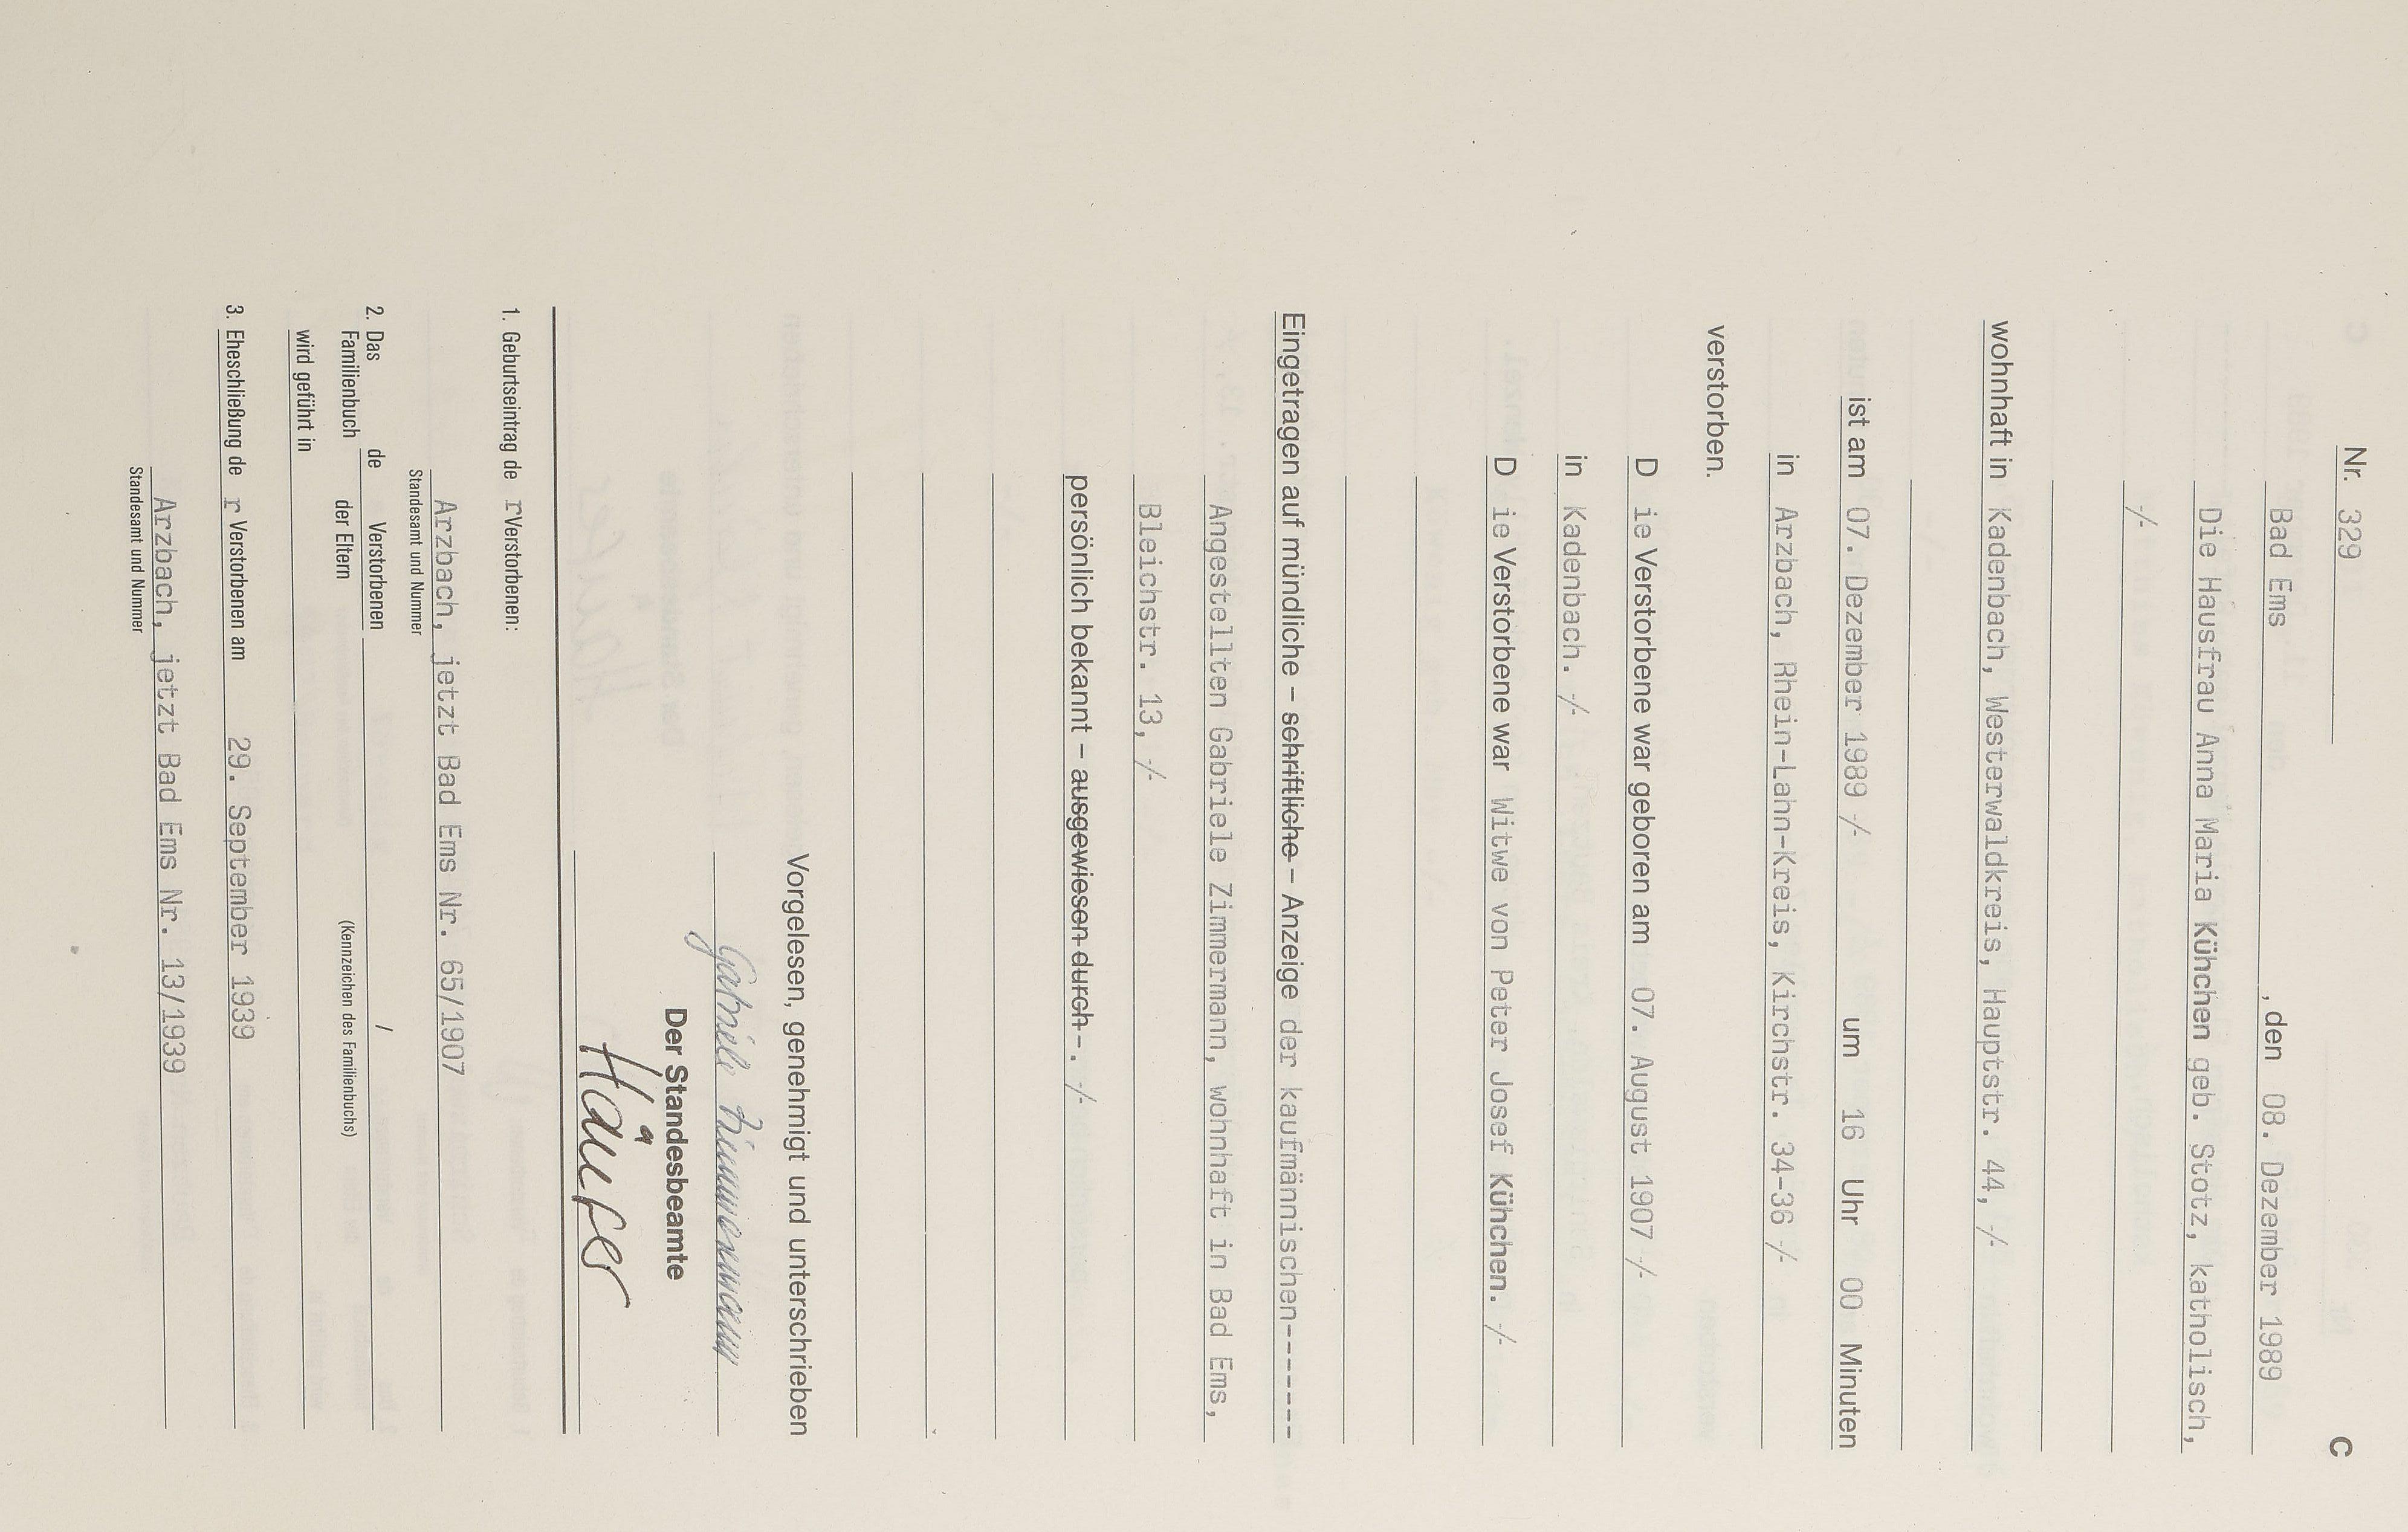 C
Nr. 329
Bad Ems , den 08. Dezember 1989
Die Hausfrau Anna Maria Kühchen geb. Stotz, katholisch,
-/-
wohnhaft in Kadenbach, Westerwaldkreis, Hauptstr. 44, -/-
ist am 07. Dezember 1989 -/- um 16 Uhr 00 Minuten
in Arzbach, Rhein-Lahn-Kreis, Kirchstr. 34-36 -/-
verstorben.
D ie Verstorbene war geboren am 07. August 1907 -/-
in Kadenbach. -/-
D ie Verstorbene war Witwe von Peter Josef Kühchen. -/-
Eingetragen auf mündliche – schriftliche – Anzeige der kaufmännischen-------
Angestellten Gabriele Zimmermann, wohnhaft in Bad Ems,
Bleichstr. 13, -/-
persönlich bekannt – ausgewiesen durch –. -/-
Vorgelesen, genehmigt und unterschrieben
Gabriele Zimmermann
Der Standesbeamte
Häufer
1. Geburtseintrag de r Verstorbenen:
Arzbach, jetzt Bad Ems Nr. 65/1907
Standesamt und Nummer
2. Das Familienbuch de Verstorbenen / der Eltern
(Kennzeichen des Familienbuchs)
wird geführt in
3. Eheschließung de r Verstorbenen am 29. September 1939
Arzbach, jetzt Bad Ems Nr. 13/1939
Standesamt und Nummer